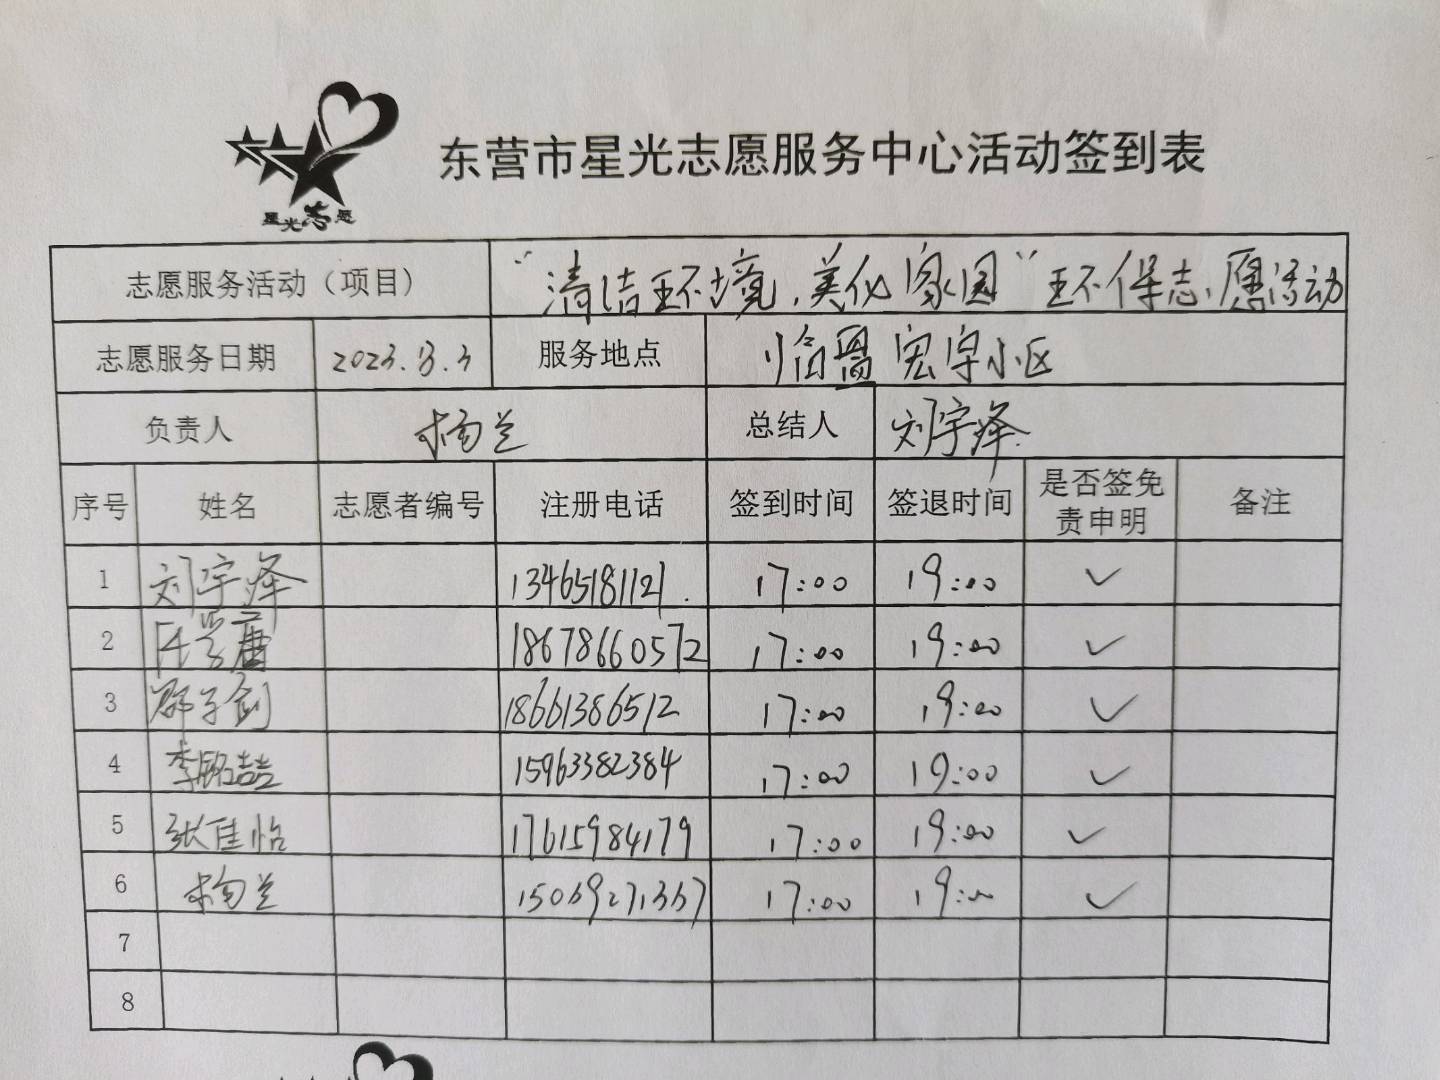 星光志愿
东营市星光志愿服务中心活动签到表
志愿服务活动（项目） “清洁环境，美化家园”环保志愿活动
志愿服务日期 2023.3.3 服务地点 临邑宏宇小区
负责人 杨兰 总结人 刘宇泽
序号 姓名 志愿者编号 注册电话 签到时间 签退时间 是否签免责申明 备注
1 刘宇泽 13465181121. 17:00 19:00 ✓
2 18678660572 17:00 19:00 ✓
3 邵子剑 18661386512 17:00 19:00 ✓
4 李铭喆 15963382384 17:00 19:00 ✓
5 张佳怡 17615984179 17:00 19:00 ✓
6 杨兰 15069271367 17:00 19:00 ✓
7
8